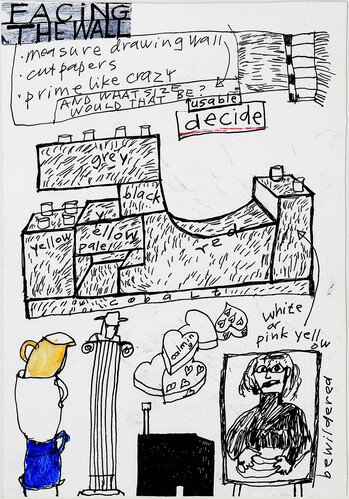 FACING
THE WALL
· measure drawing wall
· cut papers
· prime like crazy
AND WHAT SIZE
WOULD THAT BE?
usable
decide
grey
black
yellow
yellow
pale
red
cobalt
white
or
pink yellow
calmin
bewildered